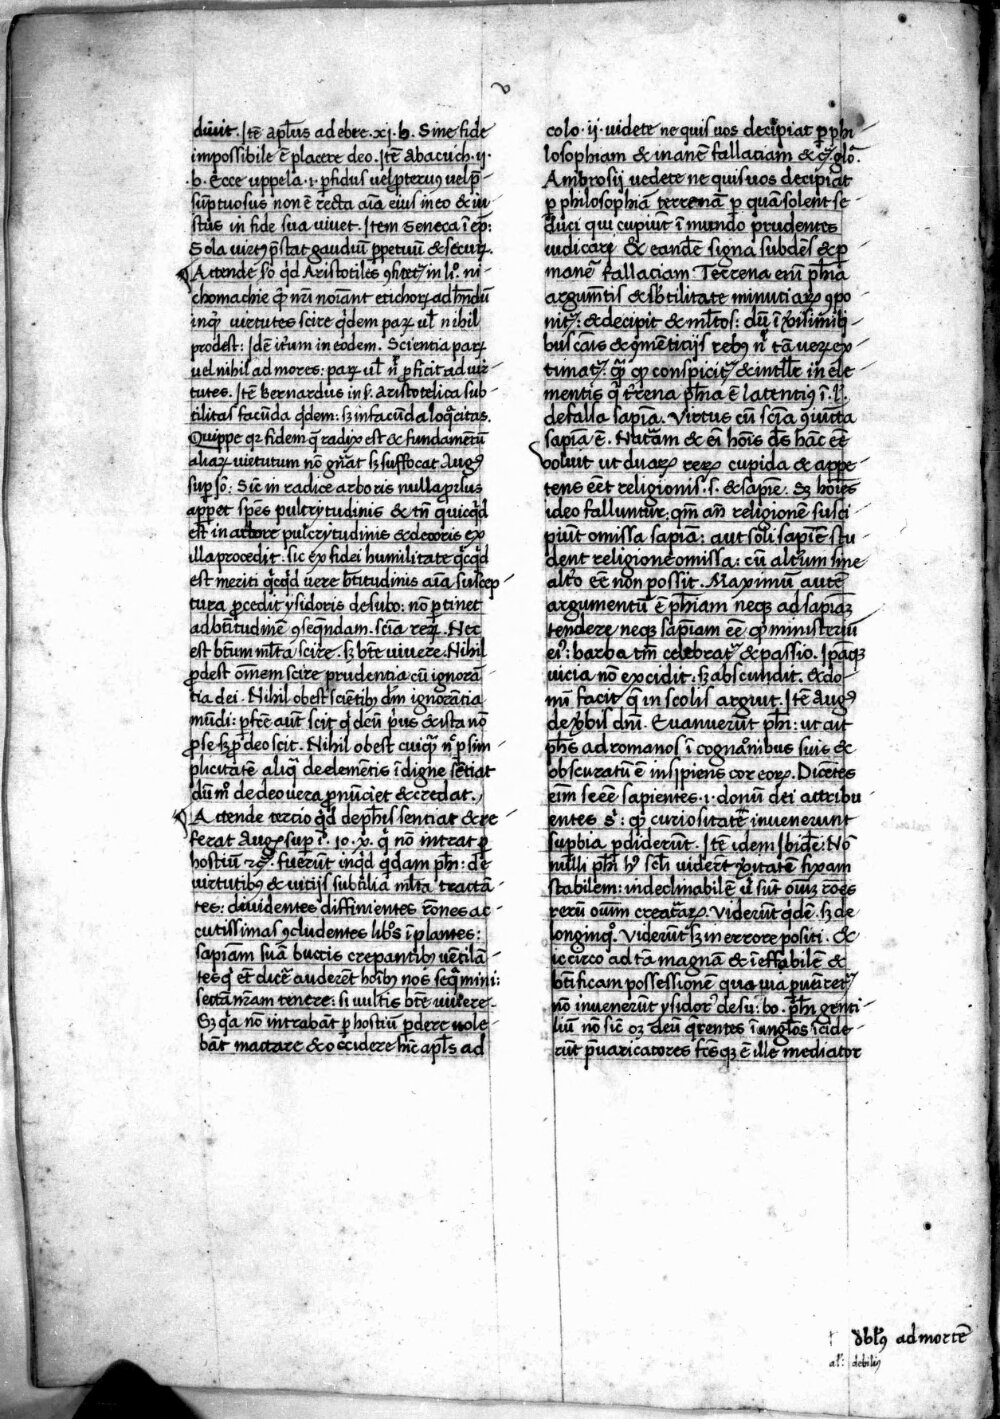 v
diuit. Itē apl̄us ad ebre. xj. b. Sine fide
impossibile ē placere deo. Itē abacuch. ij.
b. Ecce
suptuosus non ē recta aīa eius in eo & iu
stus in fide sua viuet. Item Seneca ī ep̄:
Sola virtꝰ p̄stat gaudiū ꝑpetuū & securū.
Attende so qd Aristotiles ꝯfitet᷑ in li°. ni
chomachie
inqͥ virtutes scire qͥdem parꝝ ul̄ nihil
prodest: Idē itꝝum in eodem. Scientia parꝝ
uel nihil ad mores: parꝝ ul̄ nͥ ꝓficit ad uir
tutes. Itē bernardus in s. aristotelica sub
tilitas facūda qͥdem: sꝫ infacūda loqͣcitas.
Quippe qꝛ fidem q̄ radix est & fundamētū
aliarꝝ uirtutum nō gn̄at sꝫ suffocat Augꝰ
sup Io: Sic̄ in radice arboris nulla ꝓrsus
appet spēs pulcrytudinis & tn̄ quicqͥd
est in arbore pulcrytudinis & decoris ex
illa procedit. sic ex fidei humilitate qͥcqͥd
est meriti qͥcqͥd uere b̄titudinis aīa suscep
tura ꝓcedit ysidoris de su bo: nō ꝑtinet
ad b̄titudinē ꝯseqndam. scīa rerꝝ. Nec
est b̄tum ml̄ta scire. sꝫ b̄te vivere. Nihil
ꝓdest omēm scire prudentia cū ignorā
tia dei. Nihil obest sciētibꝰ dm̄ ignorātia
mūdi: ꝑfcē aūt scit qͥ deū pͥus & ista nō
ꝓ se sꝫ ꝓ deo scit. Nihil obest cuiqͣ nͥ ꝑ sim
plicitatē aliqͣ de elemētis īdigne sētiat
dū m° de deo vera ꝓnūciet & credat.
Attende tercio qd de ph̄is sentiat & re
ferat Augꝰ sup ī. 10. x. qͥ nō intrat ꝑ
hostiū ⁊cꝰ. fuerūt inqͥd qͥdam ph̄i: de
virtutibꝰ & uitijs subtilia ml̄ta tractā
tes: diuidentes diffinientes rōnes ac
cutissimas ꝯcludentes libͦs īplantes:
sapiām suā buccis crepantibꝰ uētilā
tes qͥ et̄ dicē auderēt hoībꝰ nos seqͥmini:
sectā nr̄am tenere: si vultis b̄te viuere.
Sꝫ qͥa nō intrabāt ꝑ hostiū ꝑdere uole
bāt mactare & occidere hīc apl̄s ad
colo. ij. videte ne quis uos decipiat ꝑ phi
losophiam & inanē fallaciam & cͣ. glo.
Ambrosij vedete ne quis uos decipiat
ꝑ philosophiā terrenā ꝑ quā solent se
duci qui cupiūt ī mundo prudentes
iudicari & eandē signa subdēs & ꝑ
manē fallaciam Terrena enī ph̄ia
argumētis & sb̄tilitate minutiarꝝ ꝯpo
nit᷑: & decipit & ml̄tos: dū ī

timat᷑. qͥa qͥ conspicit᷑ & intll̄e in ele
mentis qͥ t̄rena ph̄ia ē latentiꝰ
de falla sapīa. Virtus cū scīa ꝯiūcta
sapīa ē. Nat̄am & eī hōis dꝰ hāc eē
voluit ut duarꝝ rerꝝ cupida & appe
tens eēt religionis. s. & sapīe. Sꝫ hoīes
ideo falluntur: qm̄ aūt religionē susci
piūt omissa sapīa: aut soli sapīe stu
dent religione omissa: cū altꝝum sine
alt°o eē non possit. Maximū autē
argumentū ē ph̄iam neqꝫ ad sapīaꝫ
tendere neqꝫ sapīam eē qͥ ministriū
eiꝰ: barba tm̄ celebrat᷑ & passio. Ipāqꝫ
uicia nō excidit: sꝫ abscundit. & do
mi facit qͥ in scolis arguit. Itē Augꝰ
de ꝟbis dm̄. Euanuerūt ph̄i: ut ait
ph̄s ad romanos ī cognatͦnibus suis &
obscuratū ē insipiens cor eorꝝ. Dicētes
eīm se eē sapientes. i. donū dei attribu
entes s°: qͥ curiositate invenerunt
supbia pdiderūt. Itē idem Ibidē: Nō
nulli ph̄i hꝰ scl̄i viderūt ꝟitatē fixam
stabilem: indeclinabilē uͥ sūt oīuꝫ rōes
rerū oīum creatͣrarꝝ. Viderūt qͥdē. sꝫ de
longinqͦ. Viderūt sꝫ in errore positi. &
iccirco ad ta magnā & īeffabilē &
b̄tificam possessionē qua uia puēiret᷑
nō invenerūt ysidorꝰ de su: bo. ph̄i genti
liū nō sic̄ oꝫ deū qͥrentes ī anglos īcide
rūt p̄uaricatores fcūsqꝫ ē ille mediator
admortē
al̄: debiliꝰ